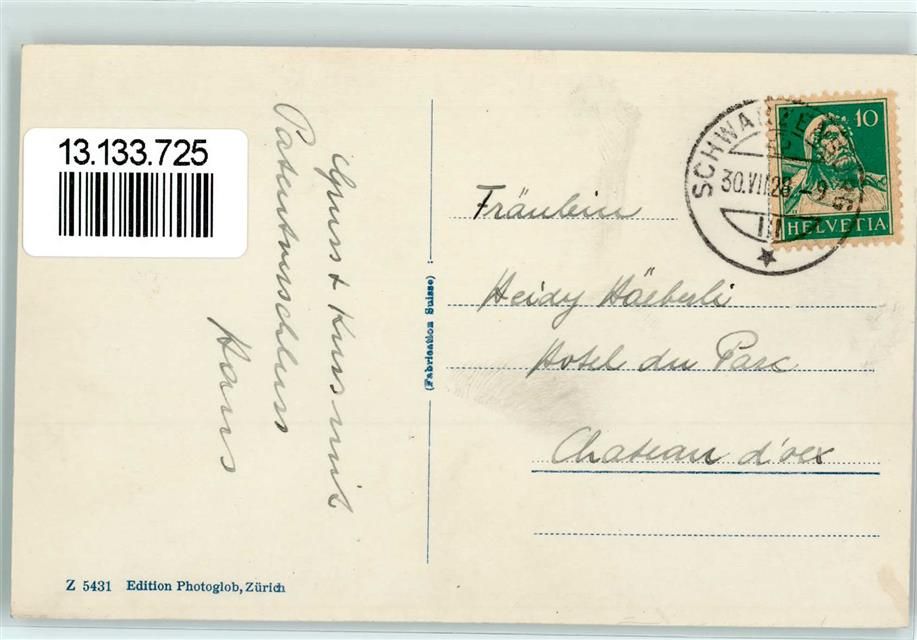 13.133.725
Gruss + Kuss mit
Patentverschluss
Hans
(Fabrication Suisse)
SCHWARZENBURG
30.VII.28.-9
10
HELVETIA
Fräulein
Heidy Häberli
Hotel du Parc
Chateau d'oex
Z 5431 Edition Photoglob, Zürich